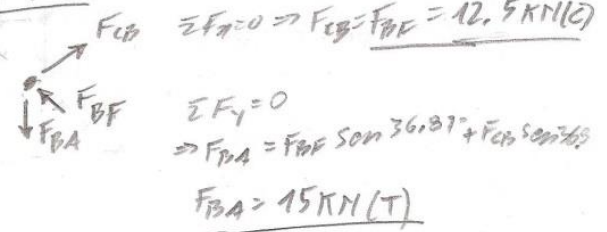 F_CB ΣF_x=0 ⇒ F_CB=F_BF = 12.5 KN(C)
F_BF
F_BA
ΣF_y=0
⇒ F_BA = F_BF Sen 36.87° + F_CB Sen 36.8
F_BA = 15 KN (T)